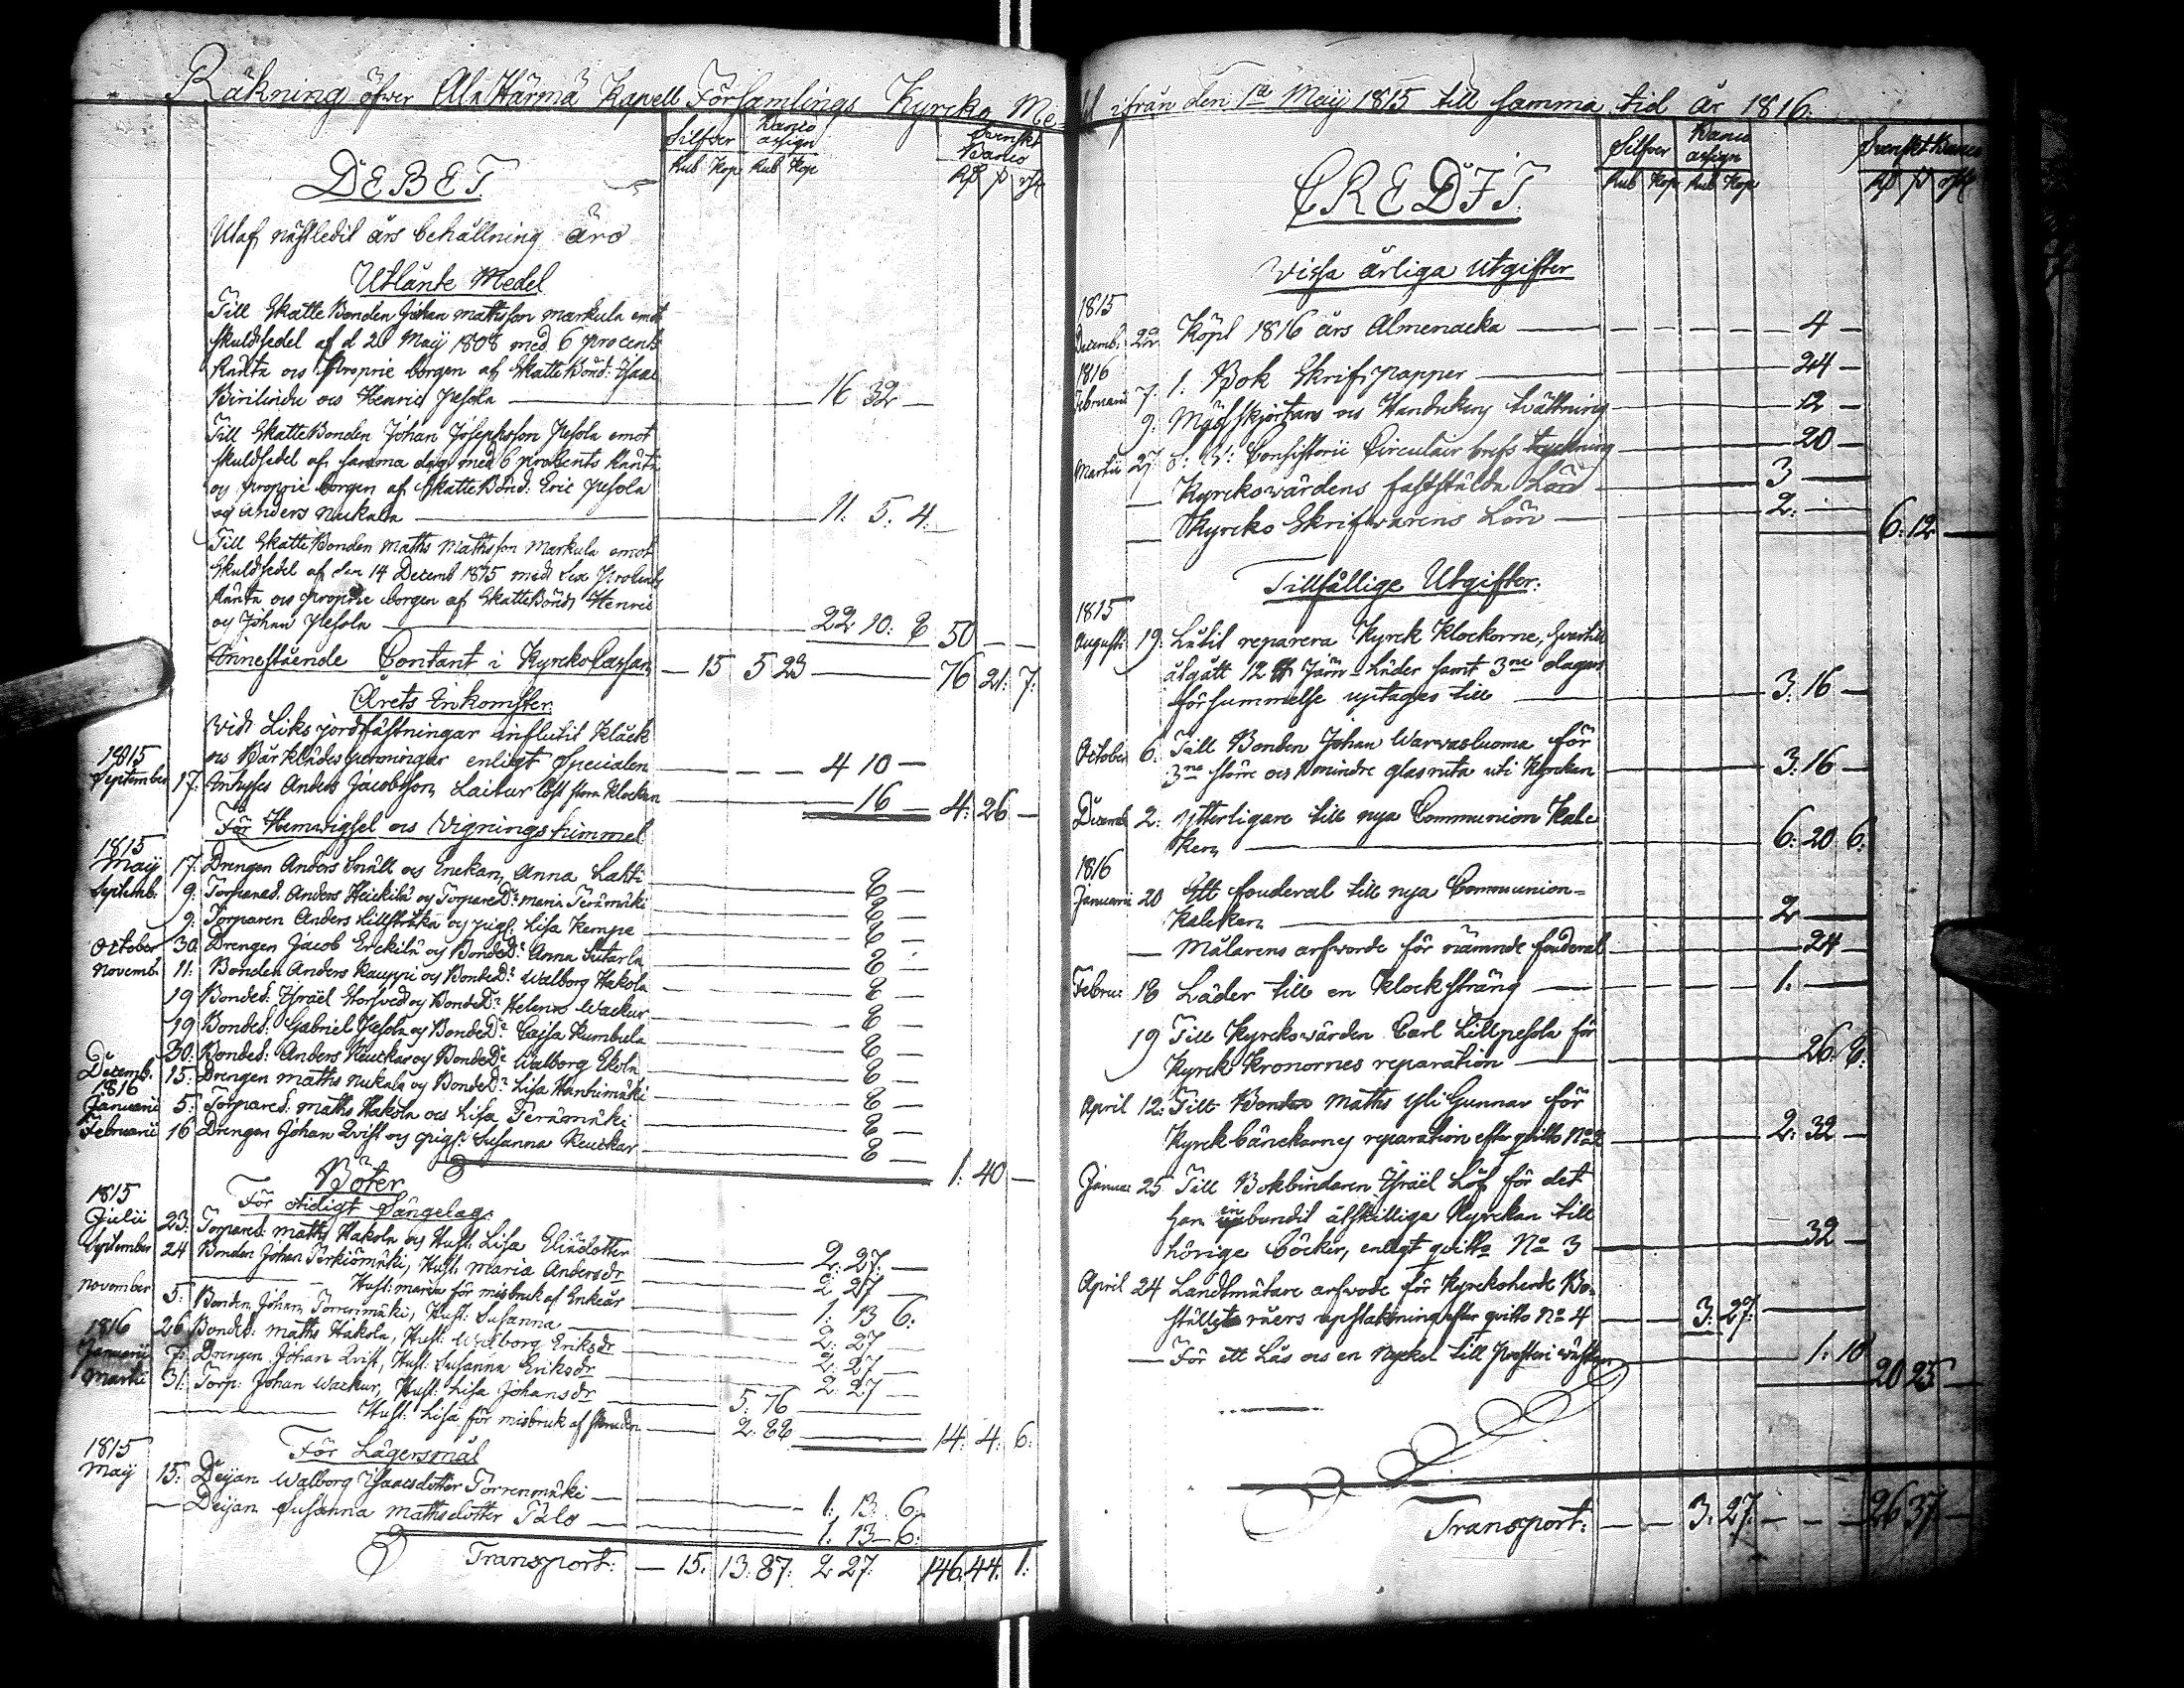 Räkning öfver Ala Härmä Kapell Församlings Kyrcko Me
DEBET
Silfver Banco assign Svenskt Banco
Rub Kop Rub Kop
Utaf nästledit års behållning äro
Utlånte Medel
Till Skatte Bonden Johan Mathsson Markula emot
skuldsedel af d 20 Maij 1808 med 6 procents
Ränta och Proprie borgen af Skatte Bönd: Isaac
och Henric Pesola — 16 32 —
Till Skatte Bonden Johan Josephsson Pesola emot
skuldsedel af samma dag med 6 procents Ränta
och proprie borgen af Skatte Bönd: Eric Pesola
och Anders Nuckala — 11. 5. 4.
Till Skatte Bonden Maths Mathsson Markula emot
Skuldsedel af den 14 Decemb 1815 med Sex Procents
Ränta och proprie borgen af Skatte Bönd: Henric
och Johan Pesola — 22 10: 8 50 — —
Innestående Contant i Kyrcko Cassan — 15 5 23 — 76 21: 7:
Årets Inkomster
Vid Liks jordfästningar influtit Kläck
och Bårklädes penningar enligt Specialen — 4 10 —
1815
September 17. Inhyses Anders Jacobsson Laitur löst stora Klockan — 16 — 4: 26 —
För Hemvigsel och Vignings himmel
1815
Maij 17. Drengen Anders Snåll och Enckan Anna Lahti — 8 —
Septemb: 9: Torpares. Anders Heickilä och Torpare D:r Maria Terämäki — 8 —
9: Torparen Anders Lillstråka och pig: Lisa Kempe — 8 —
October 30. Drengen Jacob Erckilä och Bonde D:r Anna Sutarla — 8 —
Novemb. 11: Bonden Anders Kauppi och Bonde D:r Walborg Hakola — 8 —
19 Bondes: Israël och Bonde D:r Helena Wackur — 8 —
19 Bondes: Gabriel Pesola och Bonde D:r Caisa Kumbula — 8 —
30. Bondes: Anders Keuckar och Bonde D:r Walborg Ekola — 8 —
Decemb. 15: Drengen Maths Nukala och Bonde D:r Lisa Hanhimäki — 8 —
1816
Januarii 5: Torpares: Maths Hakola och Lisa Terämäki — 8 —
Februarii 16 Drengen Johan Qvist och pig: Susanna Keuckar — 8 —
1: 40 —
Böter
För otidigt Sängelag:
1815
Julii 23: Torpares: Maths Hakola och Hust: Lisa Eliædotter — 2: 27: —
September 24 Bonden Johan Perkiömäki, Hust: Maria Andersdr — 2 27 —
Hust: Maria för misbruk af — 1: 13 6.
November 5: Bonden Johan Torrenmäki, Hust: Susanna — 2: 27 —
26 Bondes: Maths Hakola, Hust: Walborg Eriksdr — 2: 27 —
1816
Januarii 7: Drengen Johan Qvist, Hust: Susanna Eriksdr — 2 27 —
Martii 31: Torp: Johan Wackur, Hust: Lisa Johansdr — 5: 76 —
Hust: Lisa för misbruk af — 2: 88 — 14: 4: 6:
För Lägersmål
1815
Maij 15: Deijan Walborg Isaacsdotter Torrenmäki — 1: 13. 6.
— Deijan Susanna Mathsdotter Talo — 1. 13 — 6:
Transport: — 15. 13: 87: 2 27: 146: 44: 1:
del ifrån den 1:a Maij 1815 till samma tid år 1816.
CREDIT
Silfver Banco assign Svenskt Banco
Rub Kop Rub Kop
Vissa årliga Utgifter
1815
Decemb: 22 Köpt 1816 års Almenacka — 4 —
1816
Februarii 7. 1. Bok Skrif papper — 24 —
9: Mässkjortans och Handukens tvättning — 12 —
Martii 27 Consistorii Circulair brefs tryckning — 20 —
— Kyrckowärdens fastställda Lön — 3 —
— Kyrcko Skrifvarens Lön — 2: — 6: 12 —
Tillfällige Utgifter:
1815
Augusti 19: Låtit reparera Kyrck Klockorne, hvartill
åtgått 12 Järn — Läder samt 3ne dagars
försummelse uptages till — 3: 16 —
October 6. Till Bonden Johan Warvasluoma för
3ne större och mindre glasruta uti Kyrckan — 3: 16 —
Decemb 2: ytterligare till nya Communion Kalc
ken — 6: 20 6:
1816
Januarii 20 Ett fouderal till nya Communion=
Kalcken — 2 —
— Målarens arfwode för nämnde fouderal — 24 —
Februr 18 Läder till en Klocksträng — 1. —
19 Till Kyrckowärden Carl Lillpesola för
Kyrck Kronornes reparation — 26: 8:
April 12: Till Bonden Maths Yli Gunnar för
Kyrck bänckarnes reparation efter qvitto No 2 — 2: 32 —
Januar 25 Till Bokbindaren Israël Löf för det
han inbundit åtskilliga Kyrckan till
hörige böcker, enligt qvitto No 3 — 32 —
April 24 Landtmätare arfwode för Kyrckoherde Bo=
ställets råers upstakning efter qvitto No 4 — 3: 27: —
— För ett Lås och en Nyckel till — 1: 10 20 25 —
Transport: — 3: 27: — — — 26 37: —